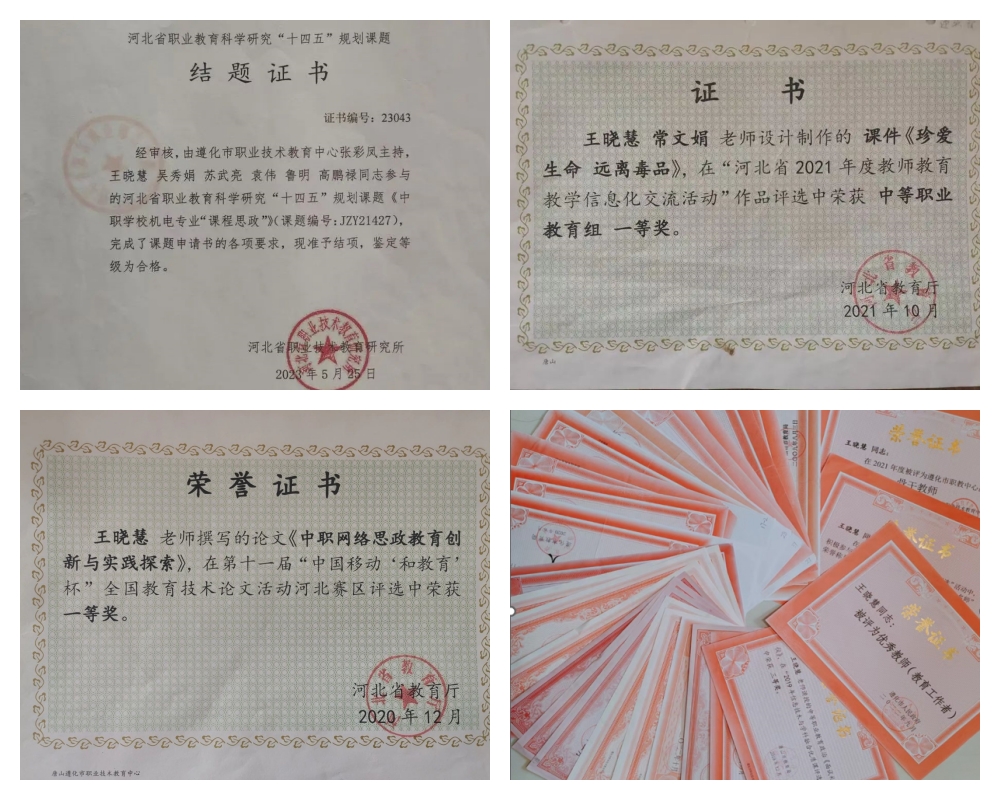 河北省职业教育科学研究“十四五”规划课题
结题证书
证书编号：23043
经审核，由遵化市职业技术教育中心张彩凤主持，
王晓慧 吴秀娟 苏武亮 袁伟 鲁明 高鹏禄同志参与
的河北省职业教育科学研究“十四五”规划课题《中
职学校机电专业“课程思政”》（课题编号：JZY21427），
完成了课题申请书的各项要求，现准予结项，鉴定等
级为合格。
河北省职业技术教育研究所
2023年5月25日
证书
王晓慧 常文娟 老师设计制作的 课件《珍爱
生命 远离毒品》，在“河北省2021年度教师教育
教学信息化交流活动”作品评选中荣获 中等职业
教育组 一等奖。
河北省教育厅
2021年10月
唐山
荣誉证书
王晓慧 老师撰写的论文《中职网络思政教育创
新与实践探索》，在第十一届“中国移动‘和教育’
杯”全国教育技术论文活动河北赛区评选中荣获
一等奖。
河北省教育厅
2020年12月
唐山遵化市职业技术教育中心
荣誉证书
王晓慧 同志：
在2021年度被评为遵化市职教中心
骨干教师
荣誉证书
王晓慧
荣誉证书
王晓慧同志：
被评为优秀教师（教育工作者）